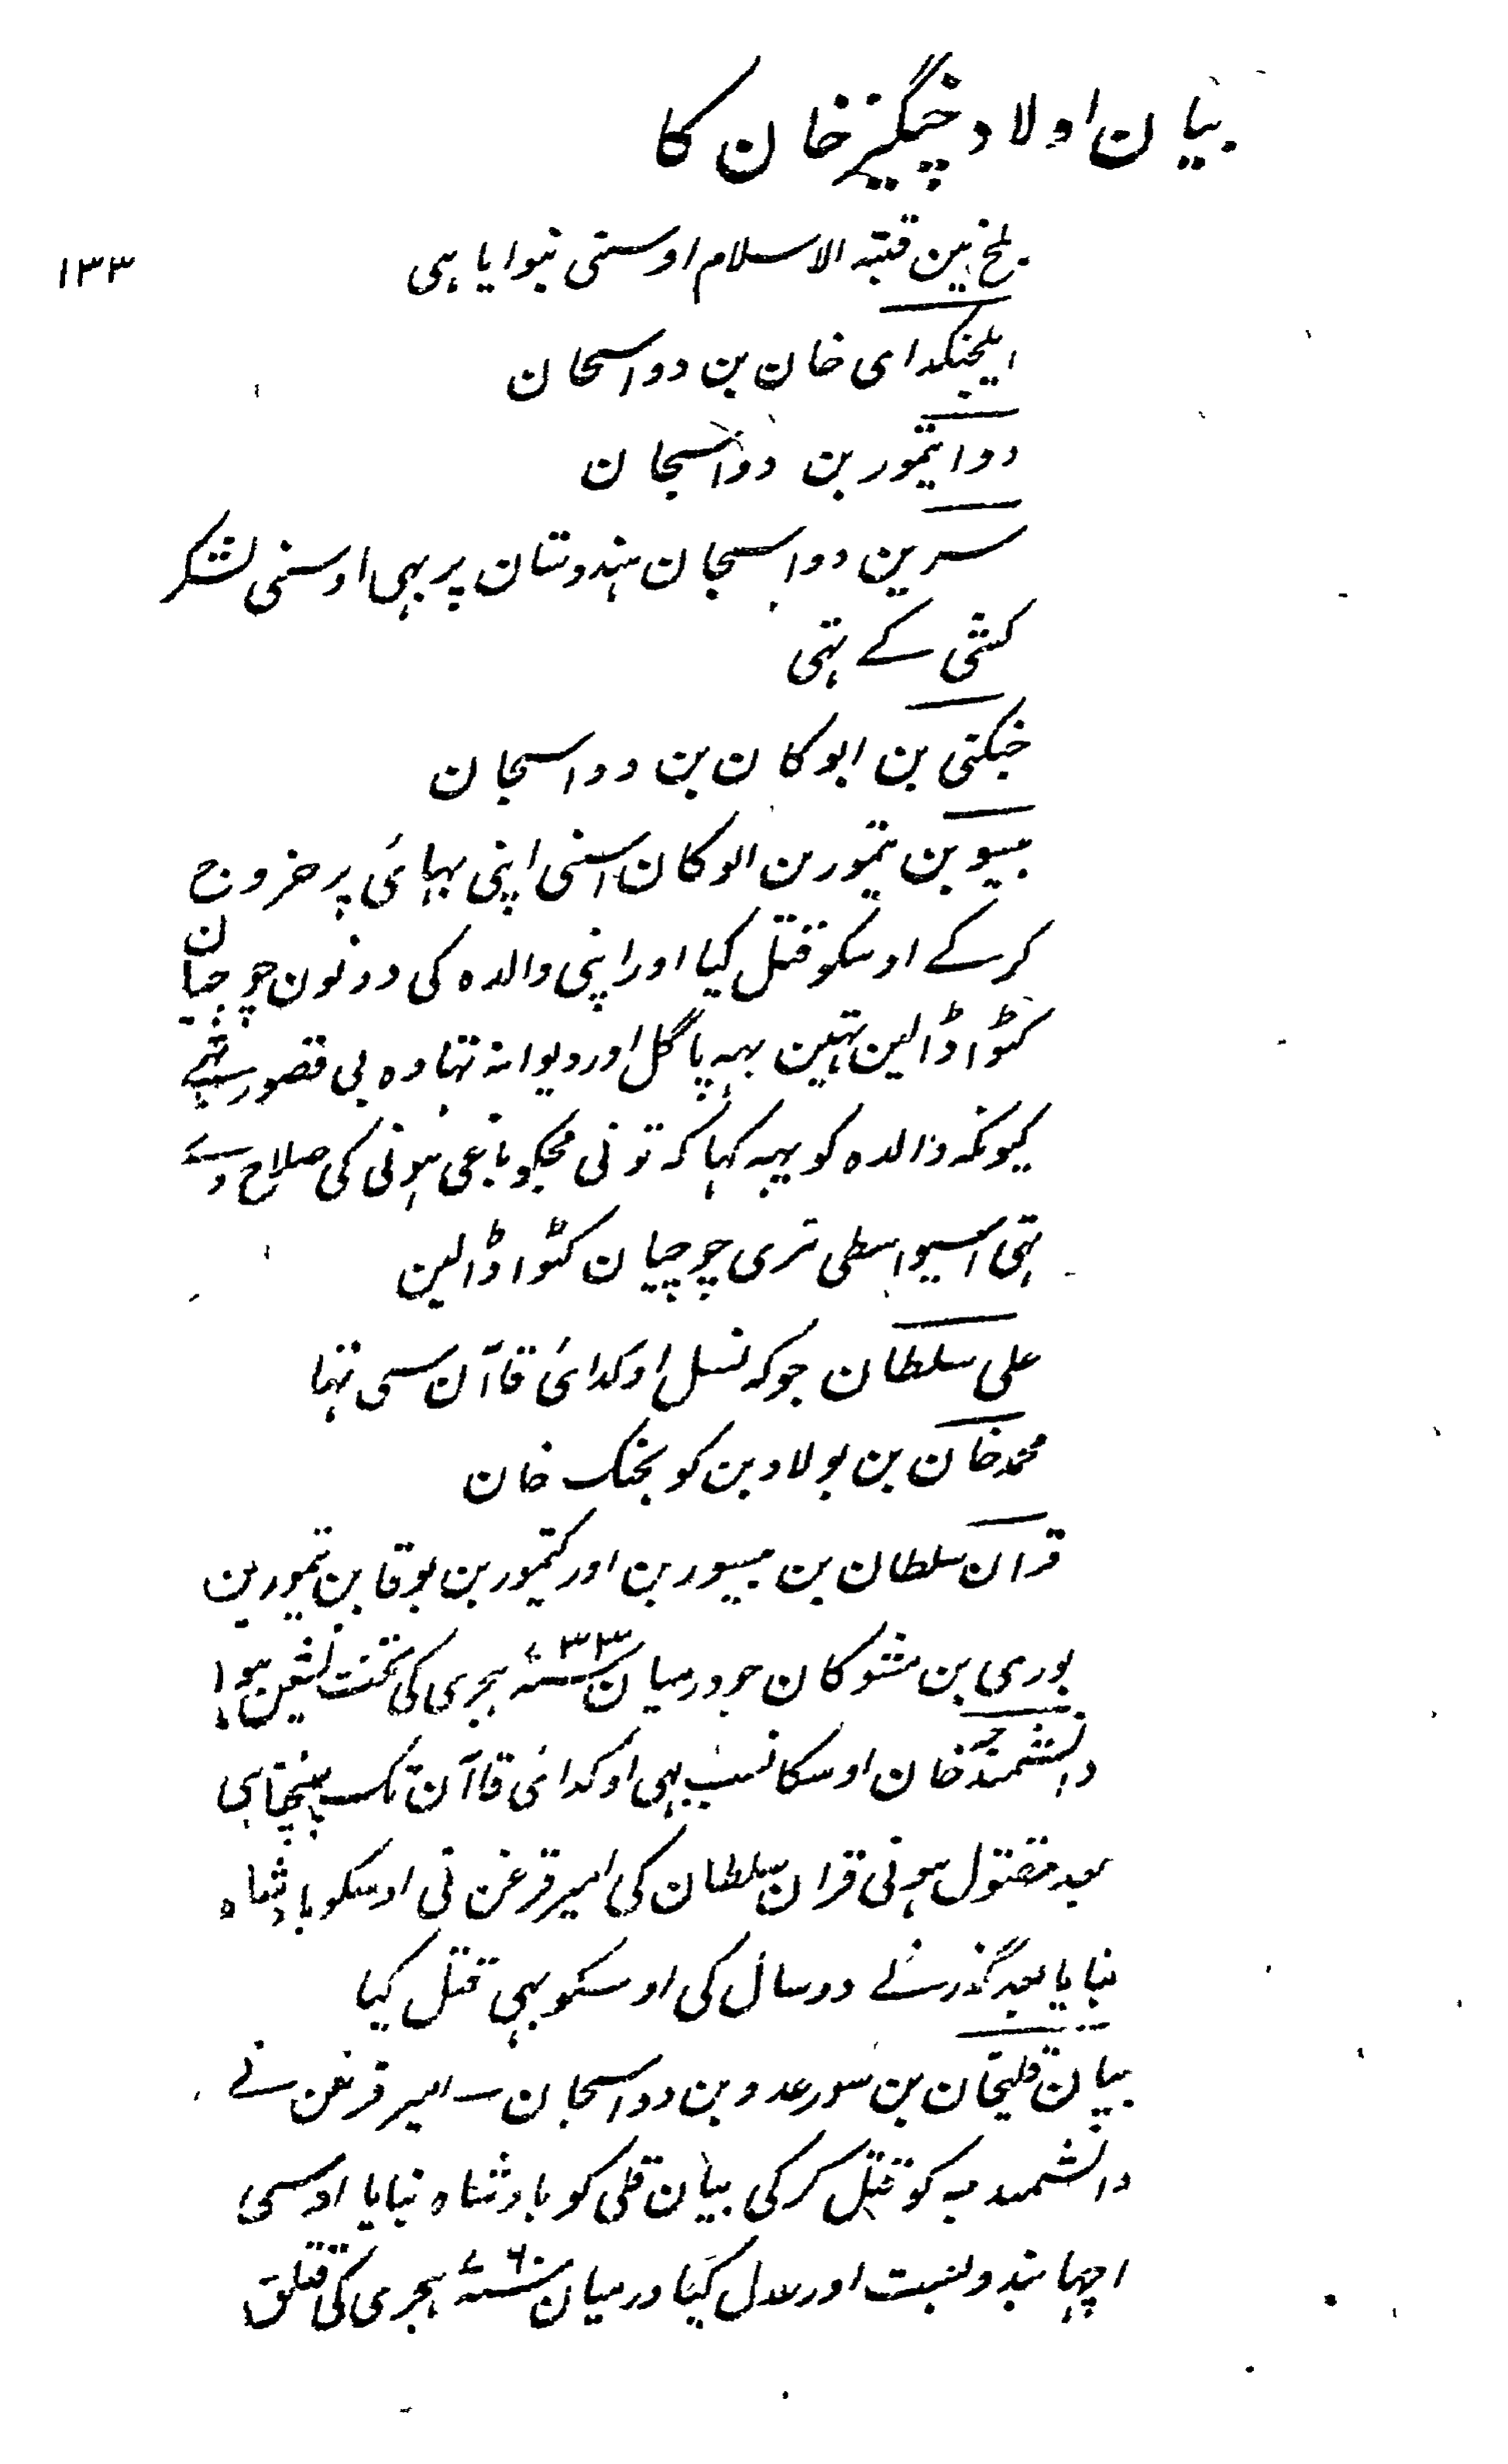 بیان اولاد چنگیز خان کا
۱۳۳
بلخ مین قبۃ الاسلام اوسنی بنوایا ہی
ایلچنکدای خان بن دوا سحان
دوا تیمور بن دوا سحان
سر بن دوا سحان ہندوستان پر بہی اوسنی لشکر
کشی کے تہی
جنکتی بن ابوکان بن دوا سحان
میسو بن تیمور بن الوکان اسنی اپنی بہائی پر خروج
کرکے اوسکو قتل کیا اور اپنی والدہ کی دونون چوچیان
کٹوا ڈالین تہین یہہ پاگل اور دیوانہ تہا وہ بی قصور تہے
کیونکہ والدہ کو یہہ کہا کہ تو نی مجکو باغی ہونی کی صلاح دے
تہی اسیواسطی تری چوچیان کٹوا ڈالین
علی سلطان جوکہ نسل اوکدائ قاآن سی تہا
محمد خان بن پولاد بن کوبجنک خان
قران سلطان بن میسور بن اور کتیمور بن بوقا بن تیمور بن
بوری بن مشوکان جو درمیان ۷۳۳ سنہ ہجری کی تخت نشین ہوا
دانشمندجہ خان اوسکا نسب بہی اوکدائ قاآن تک پہنچتا ہی
بعد مقتول ہونی قران سلطان کی امیر قرغن نی اوسکو بادشاہ
بنایا بعد گذرنے دو سال کی اوسکو بہی قتل کیا
بیان قلیخان بن سورعدو بن دوا سحان امیر قرغن نے
دانشمندجہ کو قتل کرکی بیان قلی کو بادشاہ بنایا اوسی
اچہا بندوبست اور عدل کیا درمیان ۷۶۰ سنہ ہجری کی قتلق